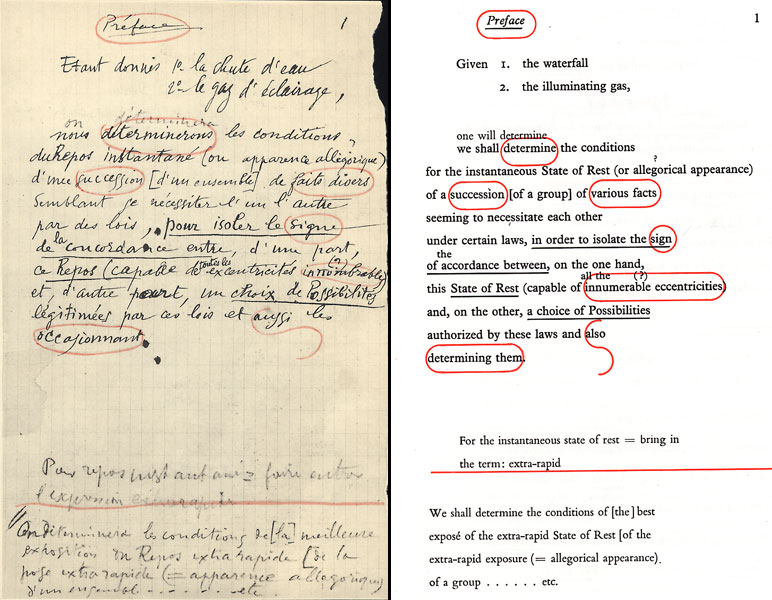 Préface
1
Etant donnés 1º la chute d'eau
2º le gaz d'éclairage,
on déterminera
nous déterminerons les conditions
du Repos instantané (ou apparence allégorique)
?
d'une succession [d'un ensemble] de faits divers
semblant se nécessiter l'un l'autre
par des lois, pour isoler le signe
la
de concordance entre, d'une part,
toutes les (?)
ce Repos (capable d'excentricités innombrables)
et, d'autre part, un choix de Possibilités
légitimées par ces lois et aussi les
occasionnant.
Pour repos instantané = faire entrer
l'expression extrarapide
On déterminera les conditions de [la] meilleure
exposition du Repos extra rapide [de la
pose extra rapide (= apparence allégorique)
d'un ensemble . . . . . . etc.
Preface
1
Given 1. the waterfall
2. the illuminating gas,
one will determine
we shall determine the conditions
?
for the instantaneous State of Rest (or allegorical appearance)
of a succession [of a group] of various facts
seeming to necessitate each other
under certain laws, in order to isolate the sign
the
of accordance between, on the one hand,
all the (?)
this State of Rest (capable of innumerable eccentricities)
and, on the other, a choice of Possibilities
authorized by these laws and also
determining them.
For the instantaneous state of rest = bring in
the term: extra-rapid
We shall determine the conditions of [the] best
exposé of the extra-rapid State of Rest [of the
extra-rapid exposure (= allegorical appearance).
of a group . . . . . . etc.